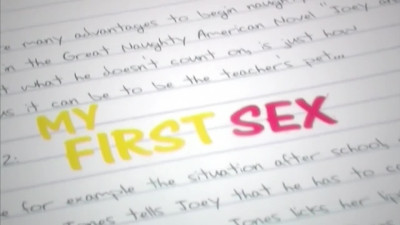 e many advantages to begin naught
in the Great Naughty American Novel "Joey an
t what he doesn't count on, is just how
us it can be to be the teacher's pet...
MY
FIRST SEX
2.
e for example the situation after school
Jones tells Joey that he has to co
Jones licks her lip